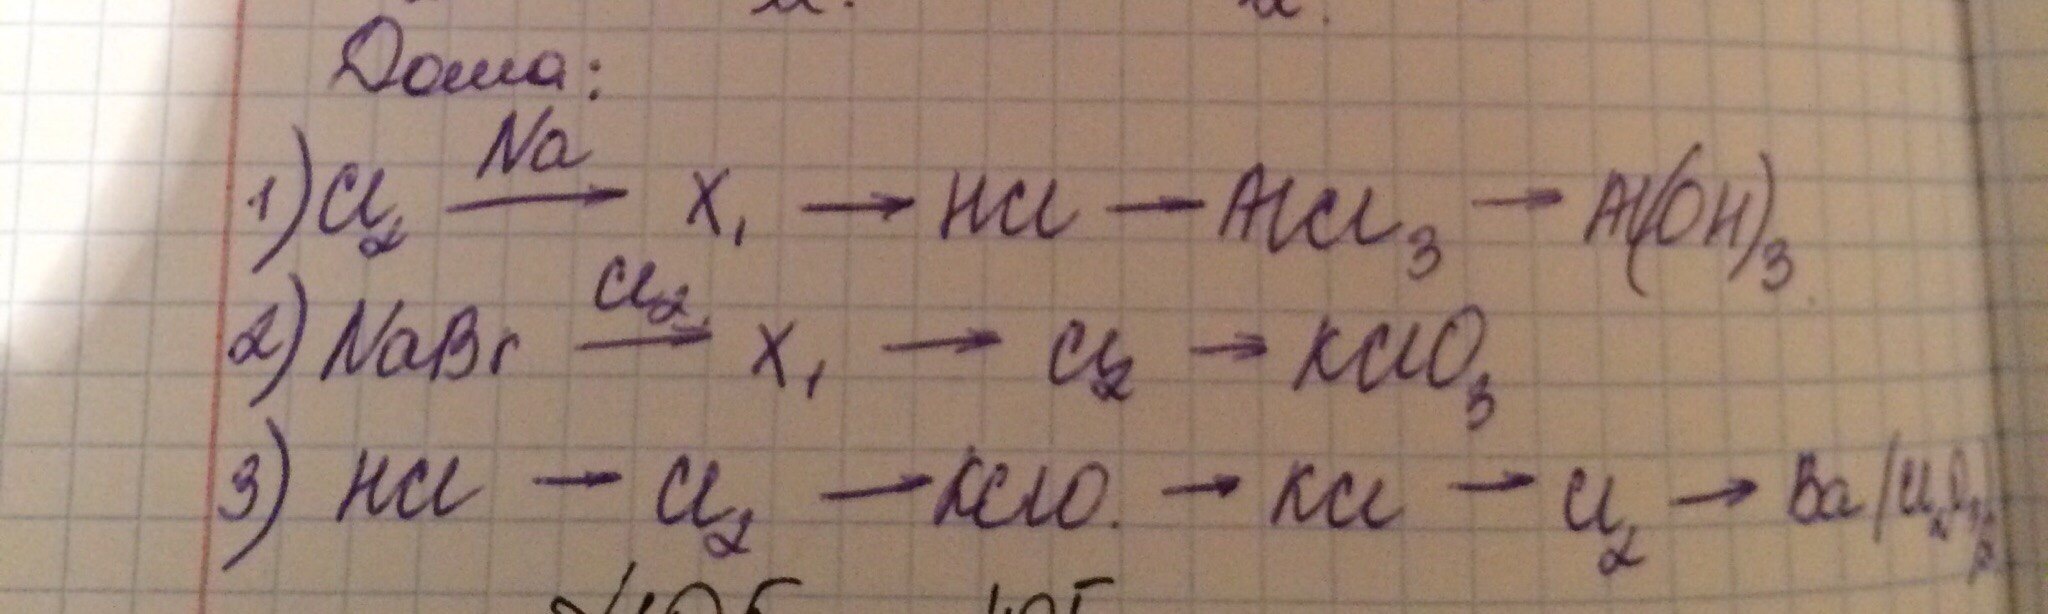 Дома:
1) Cl₂ —Na→ X₁ → HCl → AlCl₃ → Al(OH)₃
2) NaBr —Cl₂→ X₁ → Cl₂ → KClO₃
3) HCl → Cl₂ → KClO. → KCl → Cl₂ → Ba